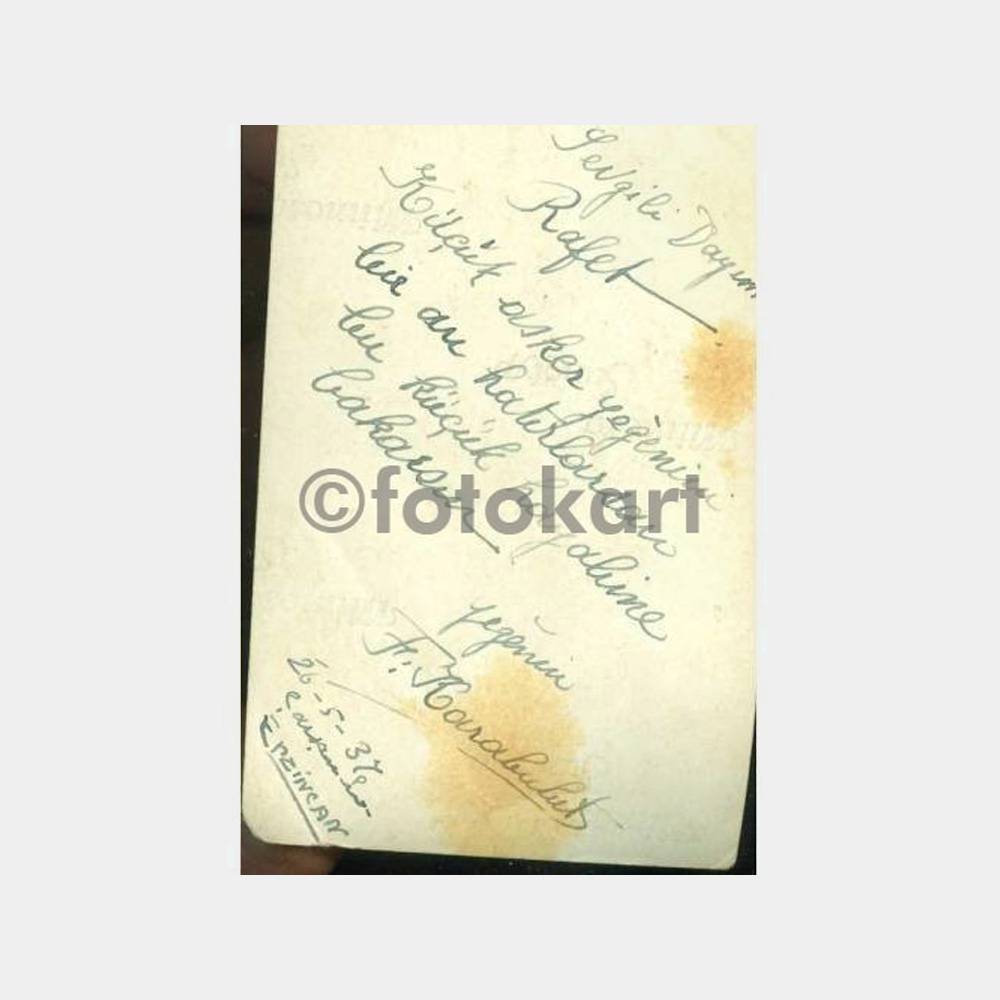 Sevgili Dayım
Rafet
Küçük asker yeğenin
bir an hatırlarsan
bir küçük hayalime
bakarsın
Yeğenin
F. Karabulut
26-5-37
Çarşamba
ERZİNCAN
©fotokart